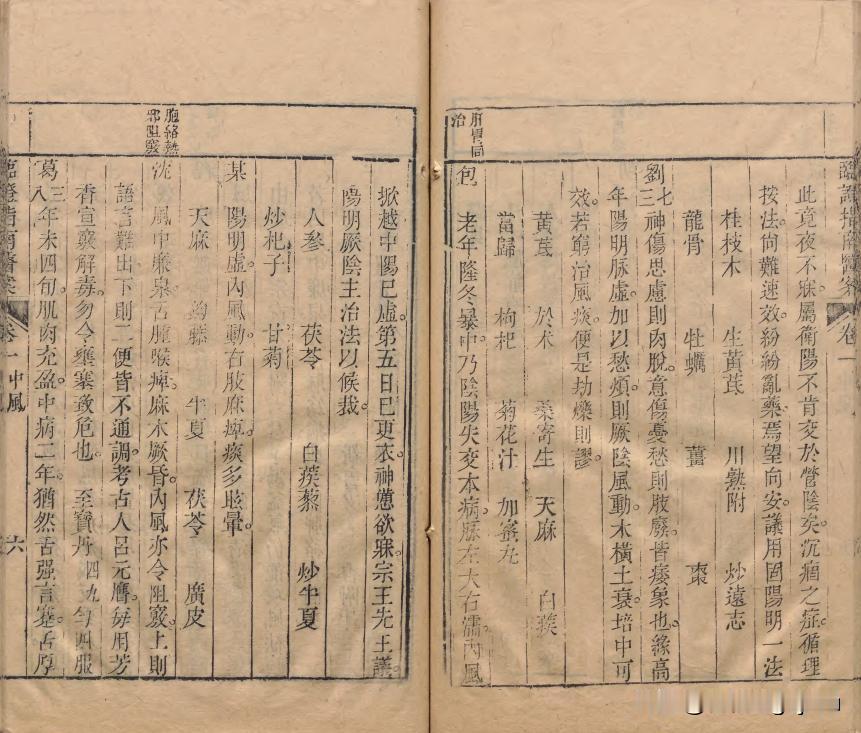 臨證指南醫案 卷一
此竟夜不寐屬衛陽不肯交於營陰矣沉痼之症循理
按法尚難速效紛紛亂藥焉望向安議用固陽明一法
桂枝木 生黃芪 川熟附 炒遠志
龍骨 牡蠣 薑 棗
劉七三 神傷思慮則肉脫意傷憂愁則肢廢皆痿象也緣高
年陽明脉虛加以愁煩則厥陰風動木橫土衰培中可
效若窮治風痰便是劫爍則謬
黃芪 於朮 桑寄生 天麻 白蒺
當歸 枸杞 菊花汁 加蜜丸
肝腎同治
包 老年隆冬暴中乃陰陽失交本病脈左大右濡內風
掀越中陽已虛第五日已更衣神憊欲寐宗王先生議
陽明厥陰主治法以候裁
人參 茯苓 白蒺藜 炒半夏
炒杞子 甘菊
某 陽明虛內風動右肢麻痺痰多眩暈
天麻 鈎藤 半夏 茯苓 廣皮
胞絡熱邪阻竅
沈 風中廉泉舌腫喉痺麻木厥昏內風亦令阻竅上則
語言難出下則二便皆不通調考古人呂元膺每用芳
香宣竅解毒勿令壅塞致危也 至寶丹四丸勻四服
葛三八 年未四旬肌肉充盈中病二年猶然舌强言蹇舌厚
臨證指南醫案 卷一 中風 六